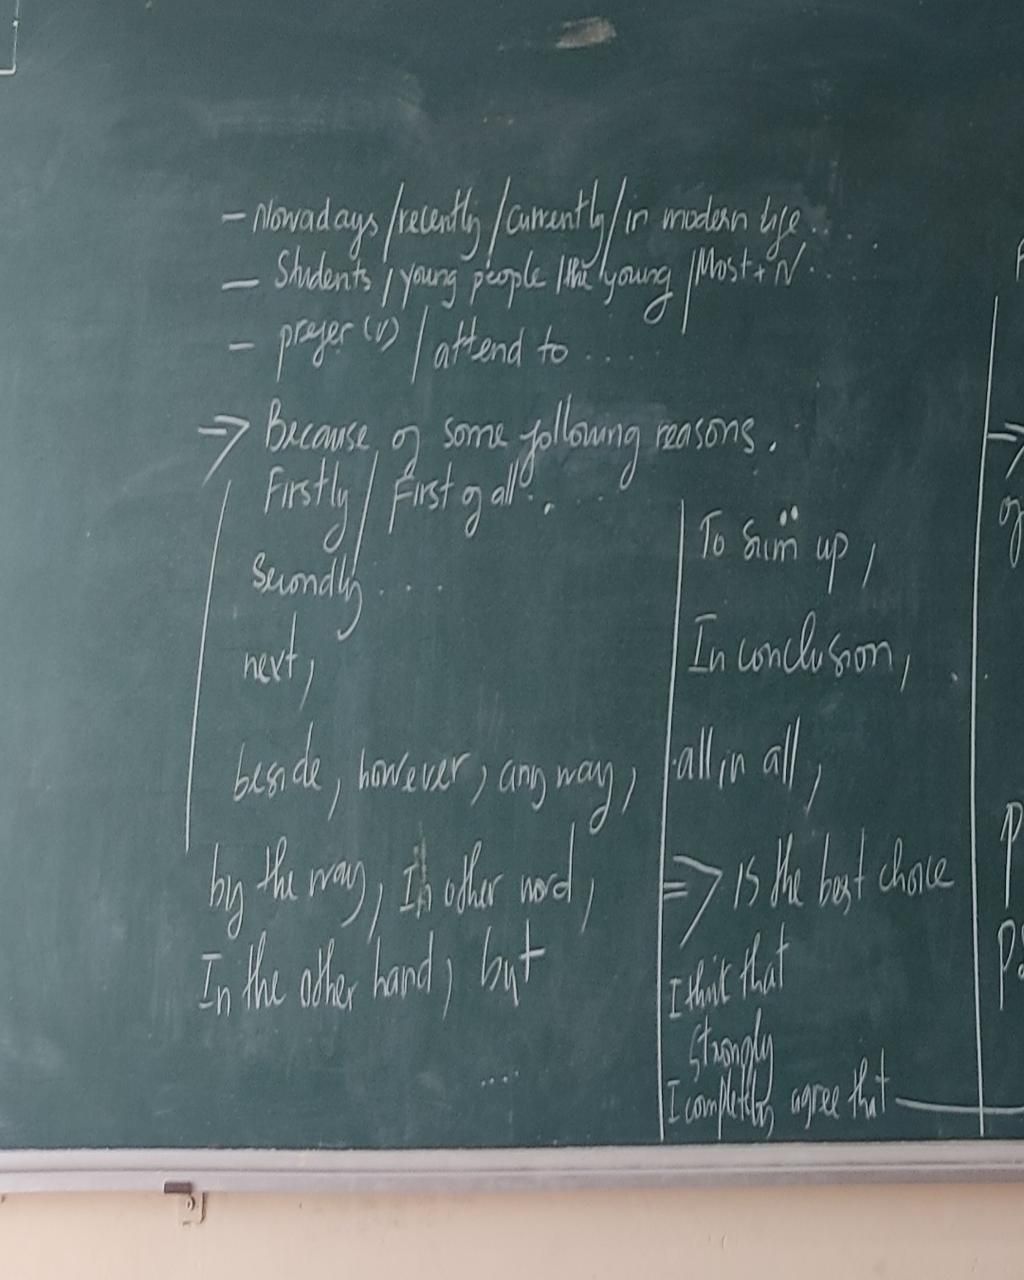 - Nowadays / recently / currently / in modern life.....
- Students / young people / the young / Most + N.....
- prefer (v) / attend to ....
=> Because of some following reasons.
Firstly / First of all....
Secondly ....
next,
beside, however, any way,
by the way, In other word,
In the other hand, but
....
To sum up,
In conclusion, ...
all in all,
=> is the best choice
I think that
strongly
I completely agree that